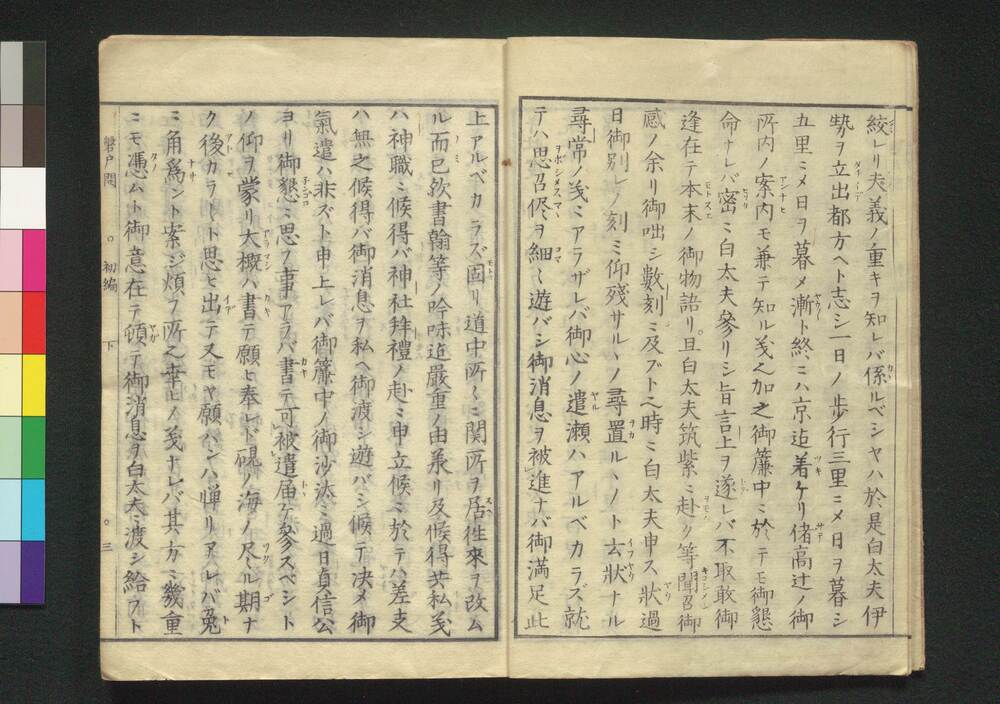 絞レリ夫義ノ重キヲ知レバ係ルベシヤハ於是白太夫伊
勢ヲ立出都方ヘト志シ一日ノ歩行三里ニメ日ヲ暮シ
五里ニメ日ヲ暮メ漸ト終ニハ京迄着ケリ偖高辻ノ御
所内ノ案内モ兼テ知ル義之加之御簾中ニ於テモ御懇
命ナレバ密ニ白太夫參リシ旨言上ヲ遂レバ不取敢御
逢在テ本末ノ御物語リ。且白太夫筑紫ニ赴ク等聞召御
感ノ余リ御咄シ數刻ニ及ブト之時ニ白太夫申ス状過
日御別レノ刻ミ仰殘サルヽノ尋置ルヽノト云狀ナル
尋常ノ義ニアラザレバ御心ノ遣瀬ハアルベカラズ就
テハ思召侭ヲ細ニ遊バシ御消息ヲ被進ナバ御満足此
上アルベカラズ固リ道中所々ニ関所ヲ居往來ヲ改ム
ル而已欤書翰等ノ吟味迄嚴重ノ由承リ及候得共私義
ハ神職ニ候得バ神社拜禮ノ赴ニ申立候ニ於テハ差支
ハ無之候得バ御消息ヲ私ヘ御渡シ遊バシ候テ决メ御
氣遣ハ非ズト申上レバ御簾中ノ御沙汰ニ過日貞信公
ヨリ御懇ニ思フ事アラバ書テ可被遣届ケ參スベシト
ノ仰ヲ蒙リ大概ハ書テ願ヒ奉レド硯ノ海ノ尽ル期ナ
ク後カラヽト思ヒ出テ又モヤ願ハンハ憚リアレバ兔
ニ角爲ント案ジ煩フ所之幸ヒノ義ナレバ其方ニ幾重
ニモ憑ムト御意在テ頓テ御消息ヲ白太夫ニ渡シ給フト
磐戸開
初編
下
三